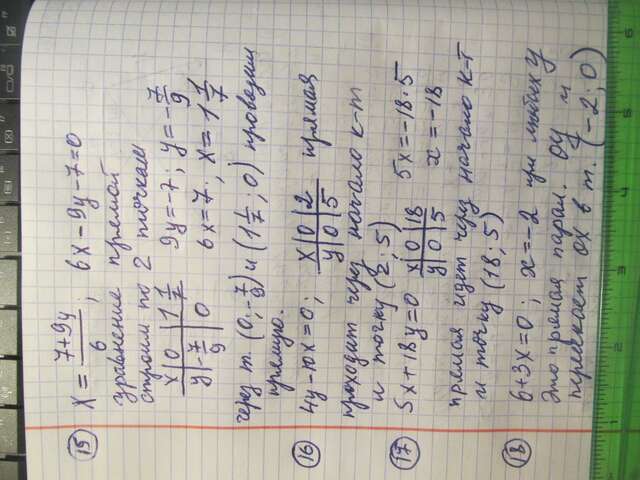 15 x = 7+9y / 6 ; 6x - 9y - 7 = 0
уравнение прямой
строим по 2 точкам
x | 0 | 1 1/7 9y = -7 ; y = -7/9
y | -7/9 | 0 6x = 7 ; x = 1 1/7
через т. (0; -7/9) и (1 1/7 ; 0) проводим
прямую.
16 4y - 10x = 0 ; x | 0 | 2 прямая
y | 0 | 5
проходит через начало к-т
и точку (2; 5)
17 5x + 18y = 0 x | 0 | 18 5x = -18·5
y | 0 | 5 x = -18
прямая идет через начало к-т
и точку (18; 5)
18 6 + 3x = 0 ; x = -2 при любых y
Это прямая парал. Oy и
пересекает Ox в т. (-2; 0)